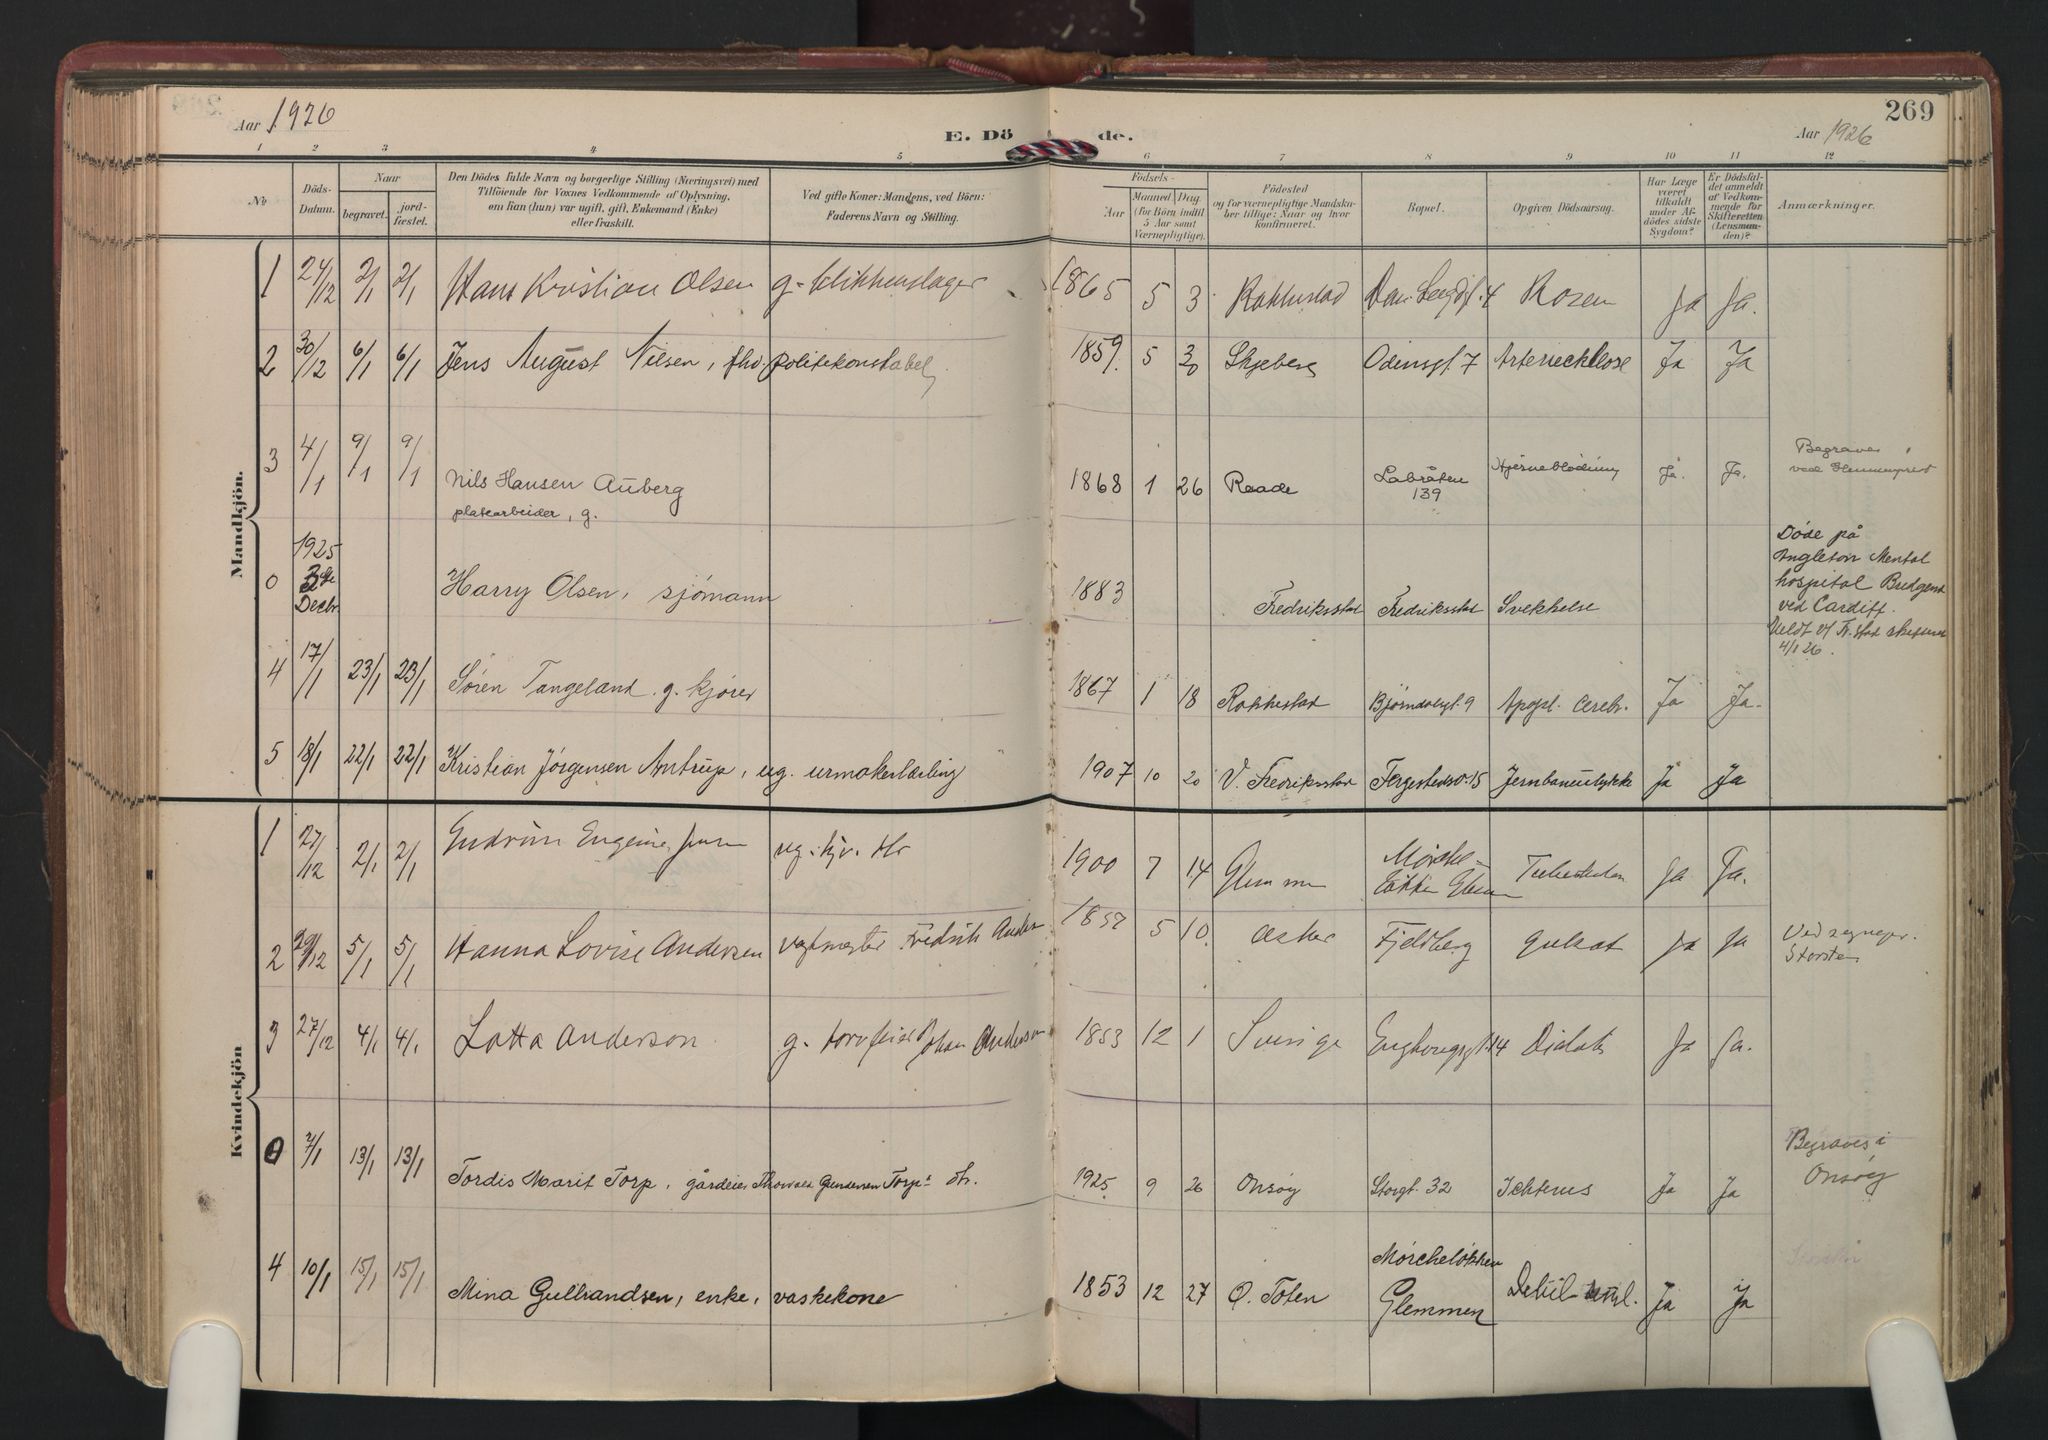 269
Aar 1926
E. Döde.
Aar 1926
1 2 3 4 5 6 7 8 9 10 11 12
No
Döds-Datum.
Naar
begravet.
jordfæstet.
Den Dödes fulde Navn og borgerlige Stilling (Næringsvei) med
Tilföiende for Voxnes Vedkommende af Oplysning,
om han (hun) var ugift, gift, Enkemand (Enke)
eller fraskilt.
Ved gifte Koner: Mandens, ved Börn:
Faderens Navn og Stilling.
Födsels-
Aar
Maaned Dag.
(for Börn indtil
5 Aar samt
Værnepligtige).
Födested
og for værnepligtige Mandskaber tillige: Naar og hvor
konfirmeret.
Bopæl.
Opgiven Dödsaarsag.
Har Læge
været
tilkaldt
under Afdödes sidste
Sygdom?
Er Dödsfaldet anmeldt
af Vedkommende for
Skifteretten
(Lensmanden)?
Anmærkninger.
Mandkjön.
1 24/12 2/1 2/1 Hans Kristian Olsen g. blikkenslager 1865 5 3 Rakkestad 4 Rosen Ja Ja.
2 30/12 6/1 6/1 Jens August Nilsen, fhv. politikonstabel 1859. 5 30 Skjeberg Odinsgt 7 Ja Ja
3 4/1 9/1 9/1 Nils Hansen Auberg 1868 1 26 Raade Labråten 139 Hjerneblödning Ja. Ja. Begraves
platearbeider, g.
0 1925 Decbr Harry Olsen, sjömann 1883 Fredriksstad Fredriksstad Svekkelse
Döde på
Angleton Mental
hospital Bridgend
ved Cardiff.
4/1 26.
4 17/1 23/1 23/1 Sören Tangeland. g. kjörer 1867 1 18 Rakkestad Björndalsgt. 9 Apopl. cerebr. Ja Ja.
5 18/1 22/1 22/1 Kristian Jörgensen Antrup, ug. urmakerlærling 1907 10 20 V. Fredriksstad Fergestedsv. 15 Jernbaneulykke Ja Ja
Kvindekjön
1 27/12 2/1 2/1 Gudrun Eugenie ug. 1900 7 14 Glemmen Ja Ja.
2 29/12 5/1 5/1 Hanna Lovise Andersen vagtmester Fredrik Anders 1857 5 10. Asker Fjeldberg Ja Ja
3 27/12 4/1 4/1 Lotta Anderson g. Johan Anderson 1853 12 1 Sverige 14 Ja Ja.
0 7/1 13/1 13/1 Tordis Marit Torp, gårdeier Thorvald Gundersen Torps dtr. 1925 9 26 Onsöy Storgt. 32 Icterus Ja Ja Begraves i
Onsöy
4 10/1 15/1 15/1 Mina Gulbrandsen, enke, vaskekone 1853 12 27 Ö. Toten Mörchelökken
Glemmen Ja Ja